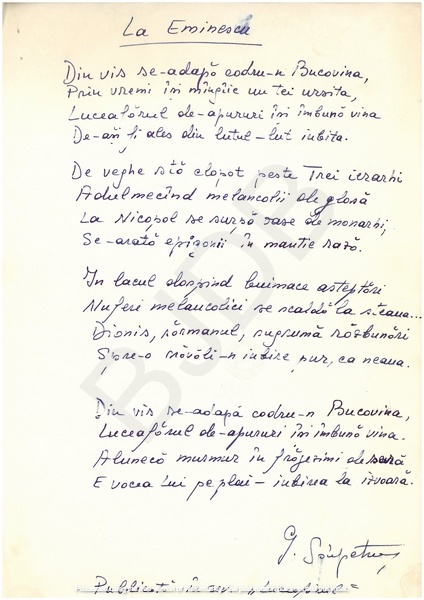 La Eminescu
Din vis se-adapă codru-n Bucovina,
Prin vremi îsi mîngîie un tei ursita,
Luceafărul de-apururi îsi îmbună vina
De-asi fi ales din lutul-lut iubita.
De veghe stă clopot peste Trei ierarhi
Adulmecînd melancolii de glosă
La Nicopol se surpă rase de monarhi,
Se-arată epigonii în mantie roză.
In lacul dospind buimace asteptări
Nuferi melancolici se scaldă la steaua...
Dionis, sărmanul, sugrumă răsbunări
Spre-o năvăli-n iubire pur, ca neaua.
Din vis se-adapă codru-n Bucovina,
Luceafărul de-apururi îsi îmbună vina.
Alunecă murmur în frăgezimi de seară
E vocea Lui pe plai - iubirea la izvoară.
G.
Publicată în "Luceafărul"
BJDB